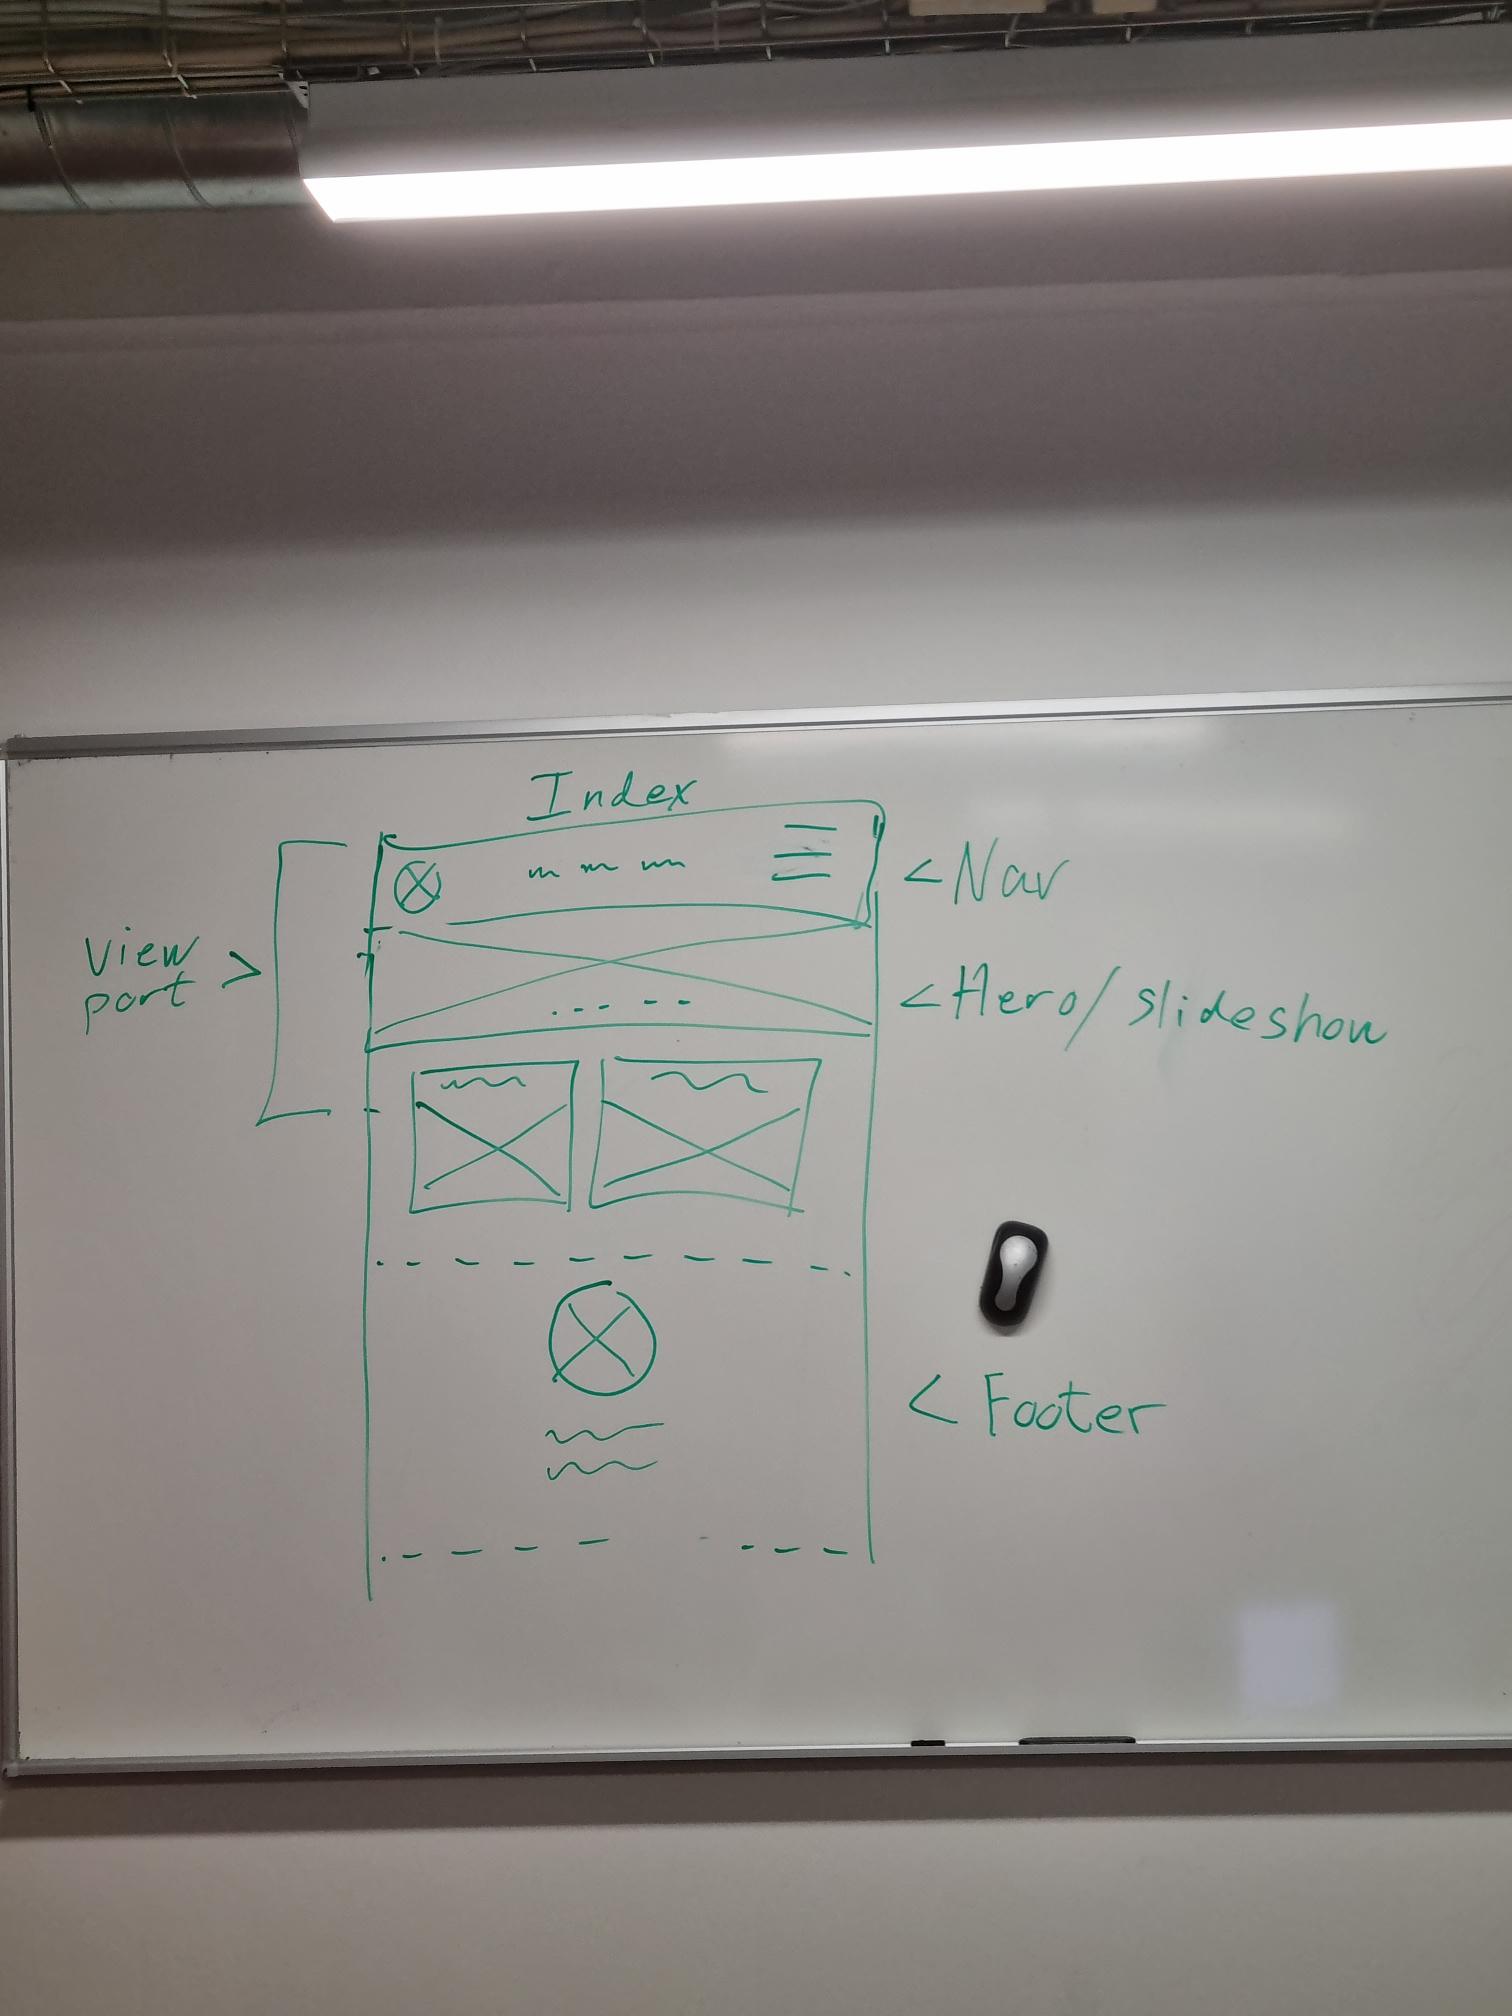 Index
< Nav
View
port >
< Hero/slideshow
< Footer